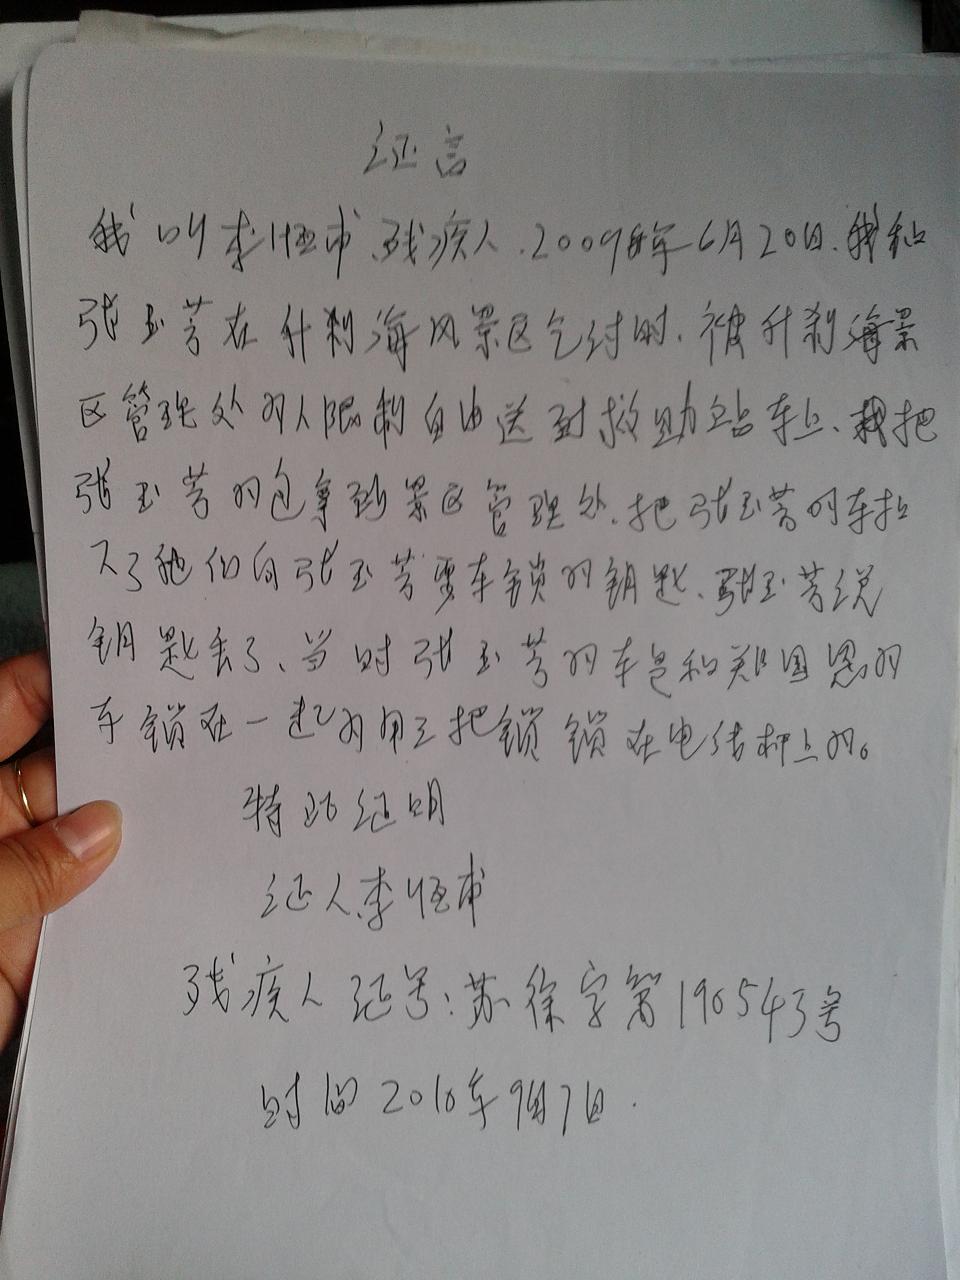 证言
我叫李恒市、残疾人.2009年6月20日.我和
张玉芳在什刹海风景区乞讨时.被什刹海景
区管理处的人限制自由送到救助站车上、我把
张玉芳的包拿到景区管理处.把张玉芳的车扣
下了他们向张玉芳要车锁的钥匙、张玉芳说
钥匙丢了、当时张玉芳的车是和郑国恩的
车锁在一起的用三把锁锁在电线杆上的。
特此证明
证人李恒市
残疾人证号:苏徐字第190543号
时间2010年9月7日.